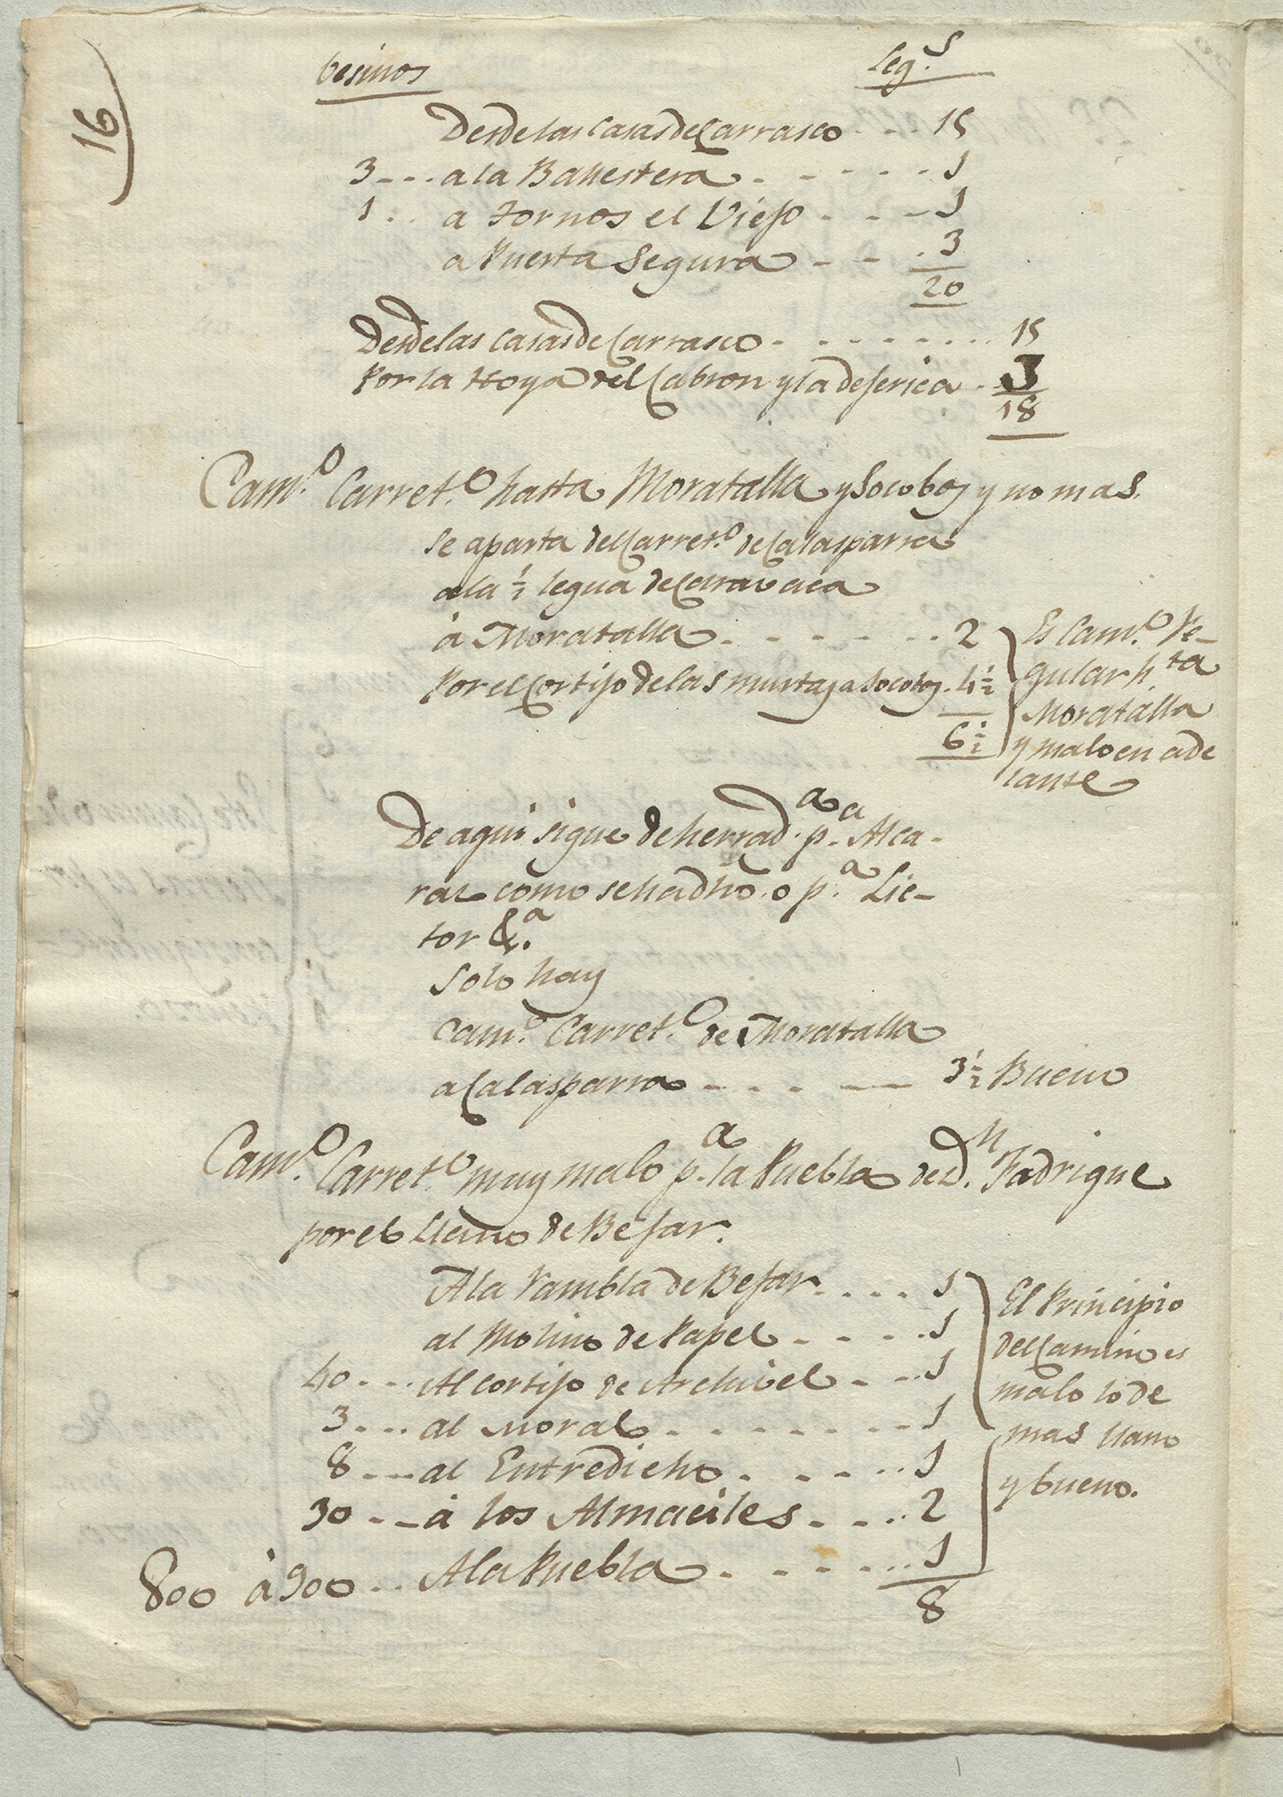 16
besinos Leg.s
Desde las Casas de Carrasco - - - 15
3 - - - a la Ballestera - - - - - - 1
1 - - a Fornos el Viejo - - - - 1
a Puerta Segura - - - 3
20
Desde las Casas de Carrasco - - - - - - - - 15
Por la Hoya del Cabron y la dehesica - 3
18
Cam.o Carret.o hasta Moratalla y Socobos y no mas.
se aparta del Carret.o de Calasparra
a la ½ legua de Caravaca
à Moratalla - - - - - - - 2
Por el Cortijo de las murtas a Socobos - 4½
6½
Es Cam.o Re-
gular h.ta
Moratalla
y malo en ade
lante
De aqui sigue de herrad.a p.a Alca-
raz como se ha dho. o p.a Lie-
tor &.a
Solo hay
Cam.o Carret.o de Moratalla
a Calasparra - - - - - 3½ Bueno
Cam.o Carret.o muy malo p.a la Puebla de D.n Fadrique
por el Llano de Bejar.
A la Rambla de Bejar - - - - 1
al Molino de Papel - - - - - 1
40 - - - Al Cortijo de Archivel - - - 1
3 - - - - al Moral - - - - - - - 1
8 - - - al Entredicho - - - - - - 1
30 - - - à los Almaciles - - - - 2
800 à 900 - - A la Puebla - - - - - - 1
8
El Principio
del Camino es
malo lo de
mas llano
y bueno.